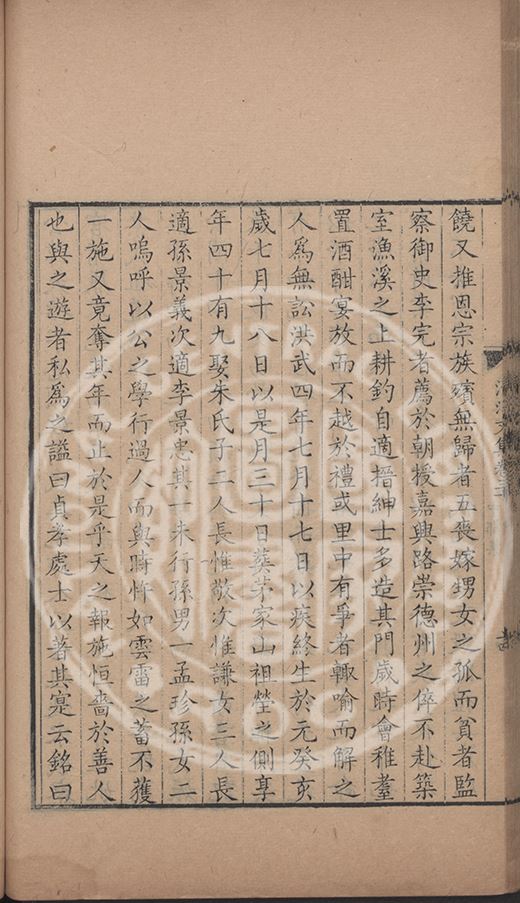 饒又推恩宗族殯無歸者五喪嫁甥女之孤而貧者監
察御史李完者薦於朝授嘉興路崇德州之倅不赴築
室漁溪之上耕釣自適搢紳士多造其門歲時會稚耋
置酒酣宴放而不越於禮或里中有爭者輙喻而解之
人爲無訟洪武四年七月十七日以疾終生於元癸亥
歲七月十八日以是月三十日葬茅家山祖塋之側享
年四十有九娶朱氏子二人長惟敬次惟謙女三人長
適孫景義次適李景忠其一未行孫男一孟珍孫女二
人嗚呼以公之學行過人而與時忤如雲雷之蓄不獲
一施又竟奪其年而止於是乎天之報施恒嗇於善人
也與之遊者私爲之謚曰貞孝處士以著其寔云銘曰